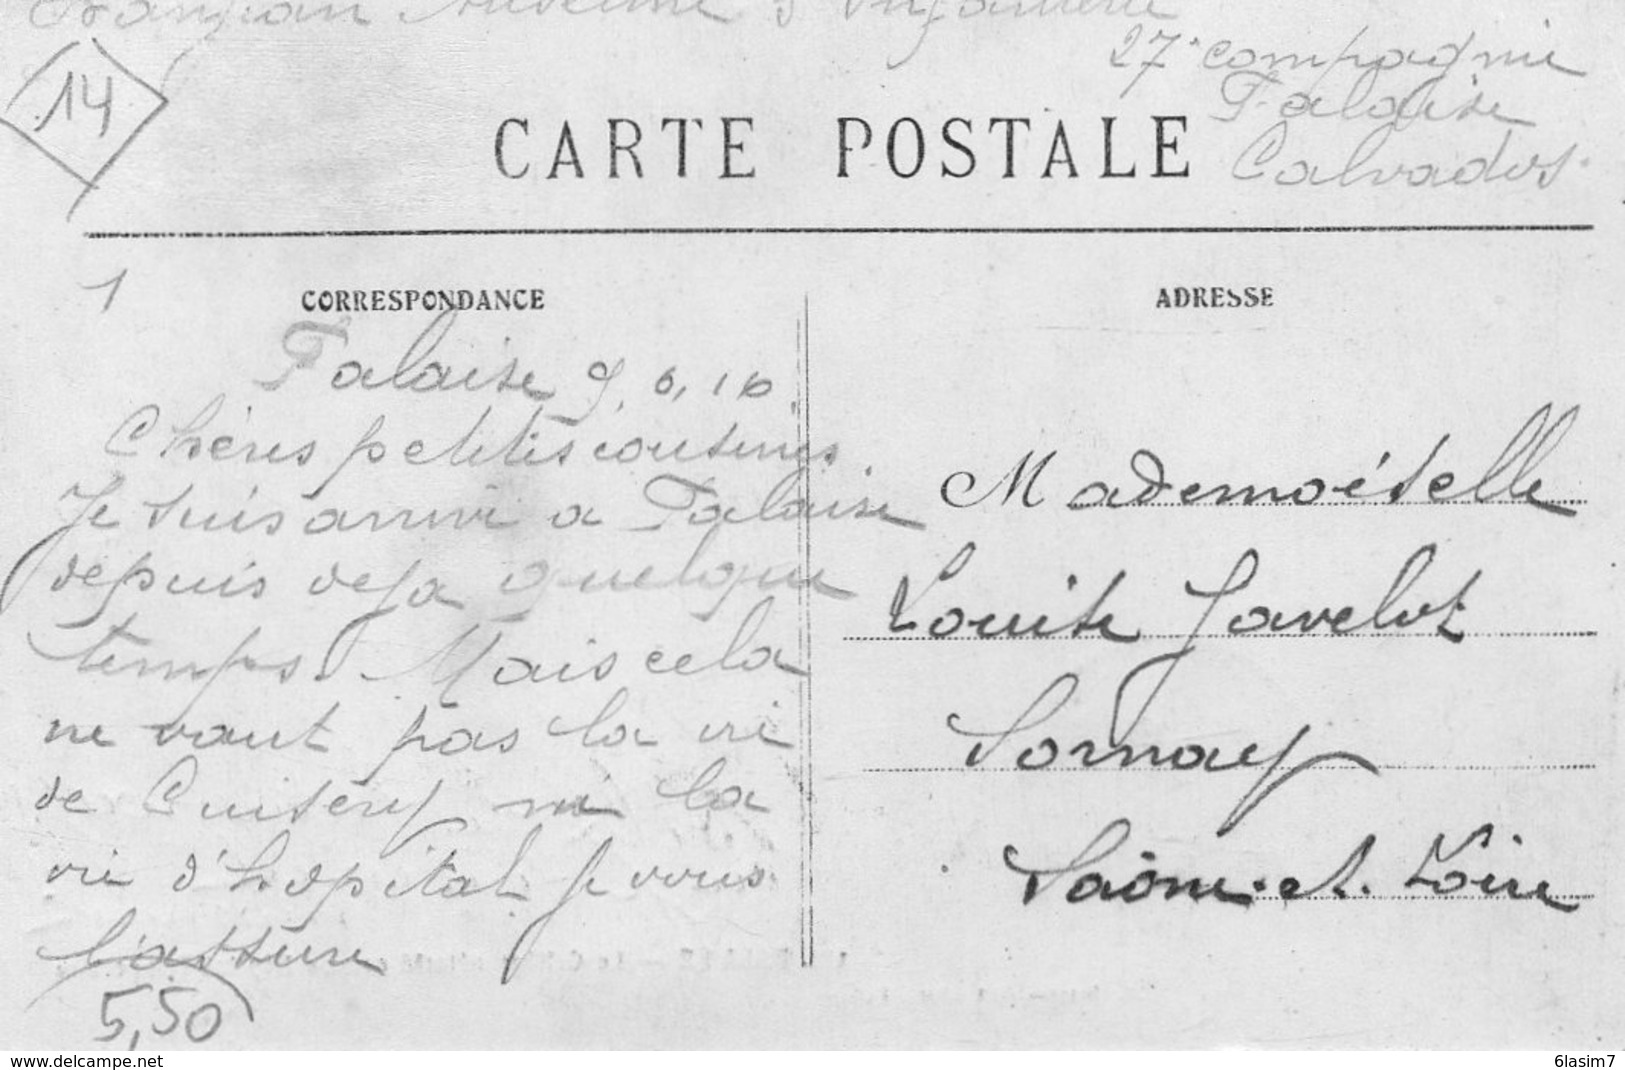 Anselme 5 Infanterie
27e compagnie
Falaise
Calvados
14
CARTE POSTALE
1
CORRESPONDANCE
Falaise 9.6.16.
Chères petites cousines
Je suis arrivé a Falaise
depuis deja quelque
temps. Mais cela
ne vaut pas la vie
de Cuisery ni la
vie d'hopital Je vous
l'assure
5,50
ADRESSE
Mademoiselle
Louise Javelot
Sornay
Saône-et-Loire
www.delcampe.net
6lasim7